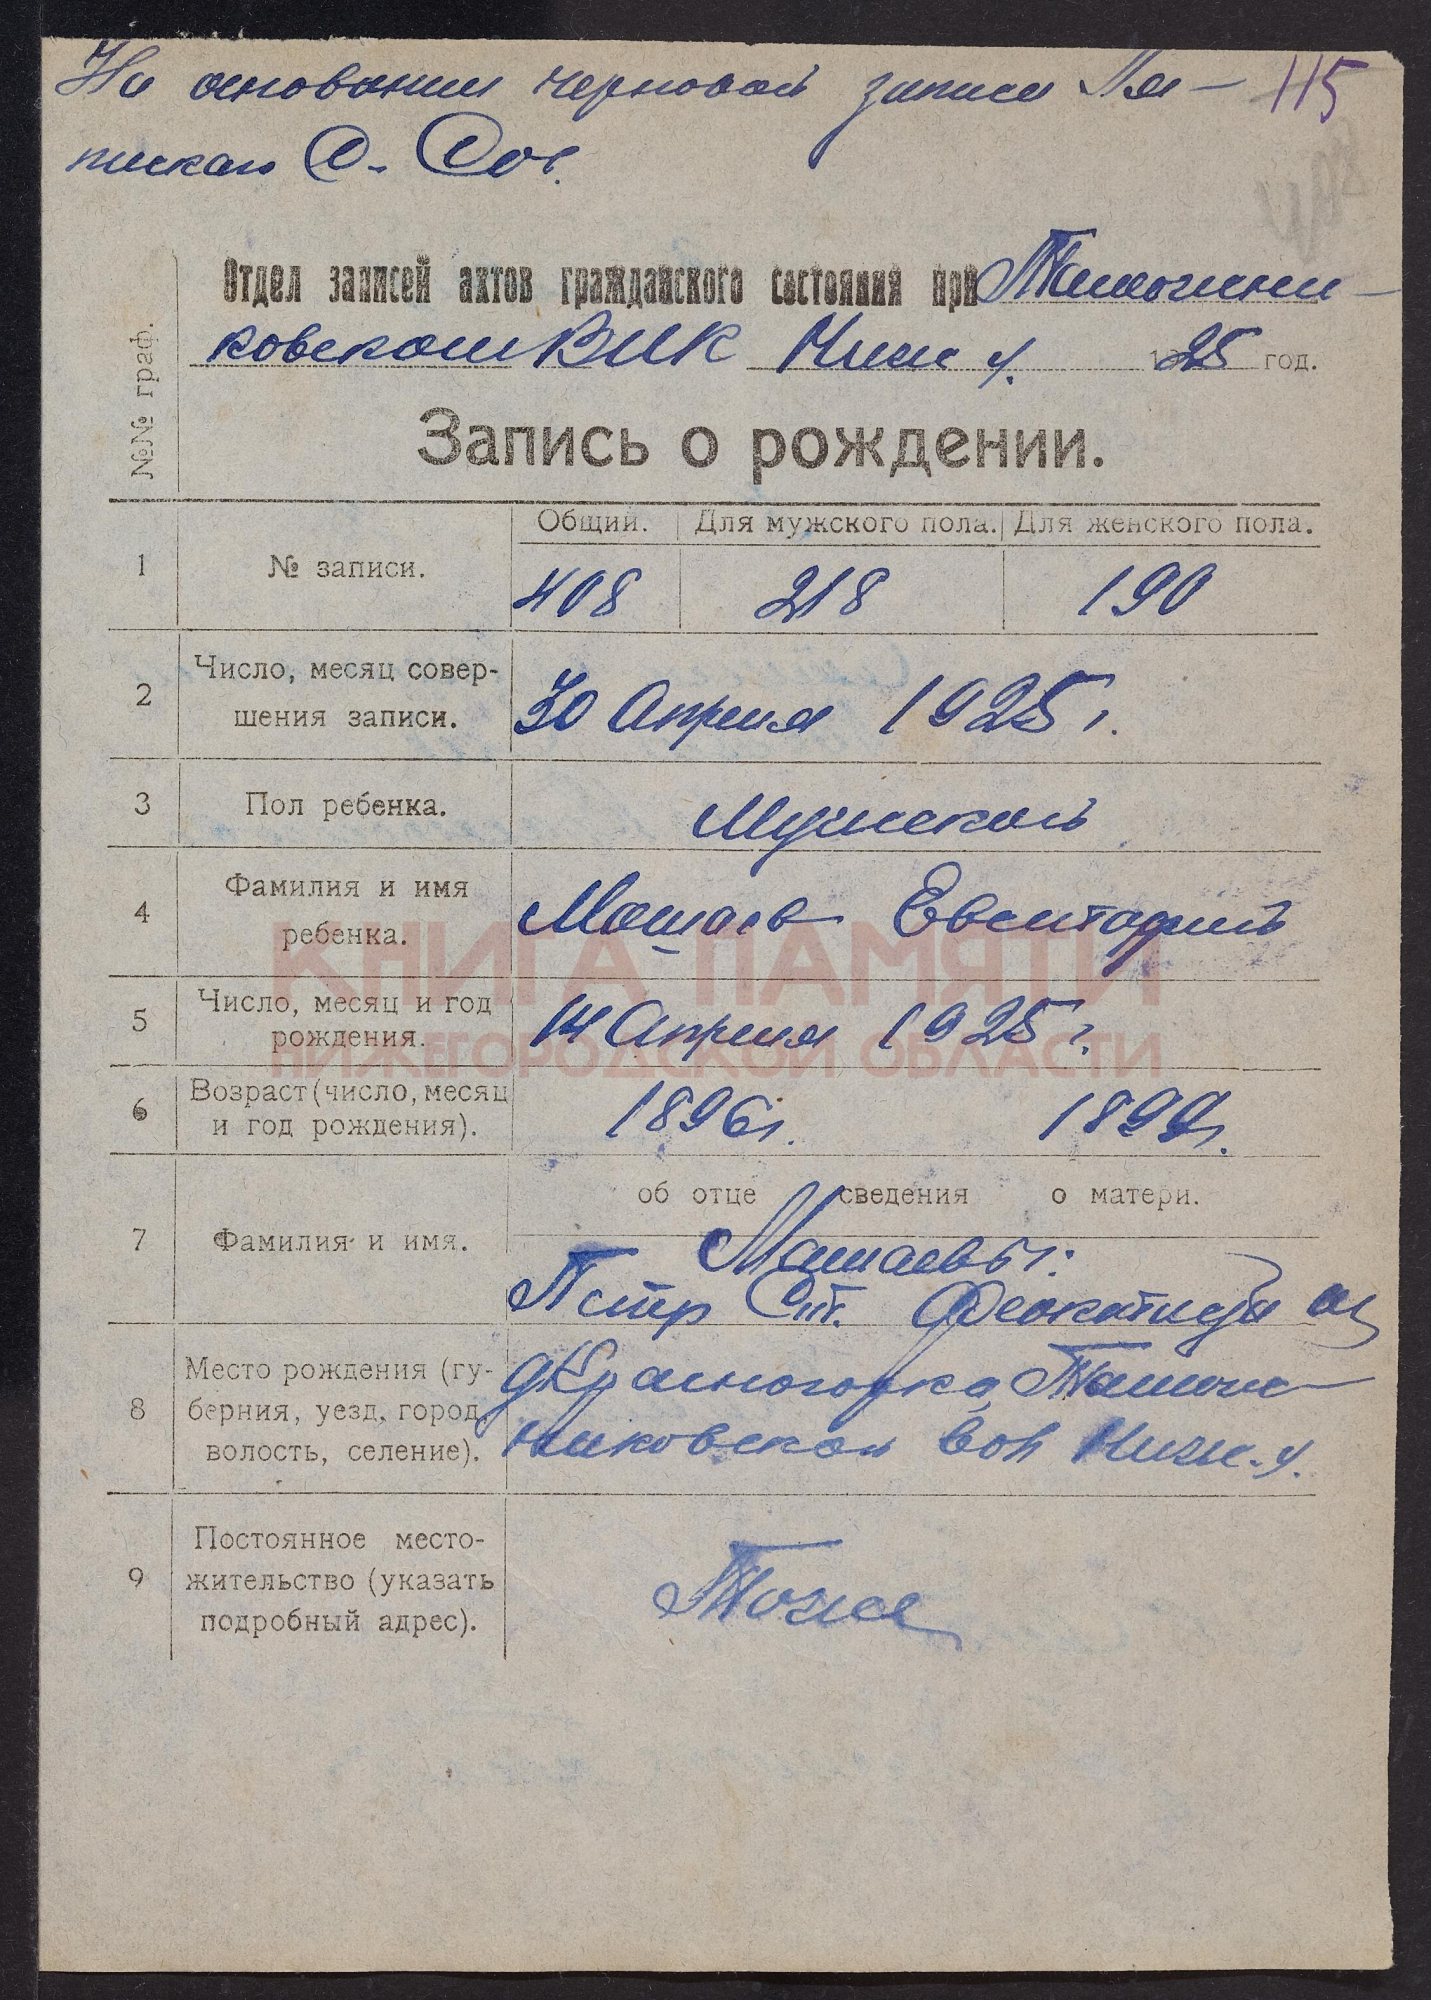 На основании черновой записи Пя-
тиской С. Сов.
115
Отдел записей актов гражданского состояния при Тимошни-
ковском ВИК Ниж у. 1925 год.
№№ граф.
Запись о рождении.
Общий. Для мужского пола. Для женского пола.
1 № записи. 408 218 190
2 Число, месяц совер-
шения записи. 30 Апреля 1925 г.
3 Пол ребенка. Мужской
4 Фамилия и имя
ребенка. Машаев
КНИГА ПАМЯТИ
5 Число, месяц и год
рождения. 14 Апреля 1925 г.
НИЖЕГОРОДСКОЙ ОБЛАСТИ
6 Возраст (число, месяц
и год рождения). 1896 г. 1899 г.
об отце сведения о матери.
7 Фамилия и имя. Машаевы:
Петр Ст.
8 Место рождения (гу-
берния, уезд, город,
волость, селение). д Красногорка
вол Ниж. у.
9 Постоянное место-
жительство (указать
подробный адрес). Тоже